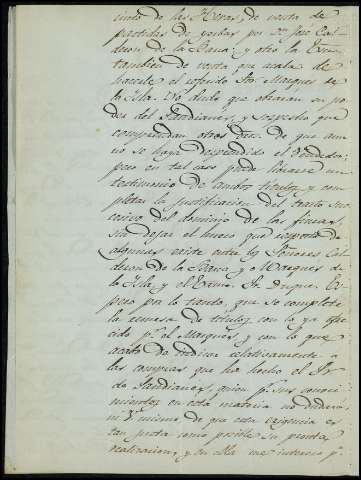 cinto de las Heras, de venta de
partidas de yerbas por Dn. José Cal-
deron de la Barca; y otro la Exma.
tambien de venta que acaba de
hacerle el referido Sor. Marqués de
la Isla. No dudo que obraran en po-
der del Sandianes, y sospecho que
comprendan otros dros. de que aun
no se haya desprendido el vendedor;
pero en tal caso puede librarse un
testimonio de ambos titulos y com-
pletar la justificacion del tracto su-
cesivo del dominio de las fincas,
sin dejar el hueco que respecto de
algunas existe entre los Señores Cal-
deron de la Barca y Marques de
la Isla y el Exmo. Sr. Duque. Es-
pero por lo tanto, que se complete
la remesa de titulos con lo ya ofre-
cido pr. el Marqués, y con lo que
acabo de indicar relativamente a
las compras que ha hecho el Sr.
de Sandianes, quien pr. sus conoci-
mientos en esta materia no dudará,
ni V. mismo, de que esta exigencia es
tan justa como posible su pronta
realizacion, y en ella me intereso pr.